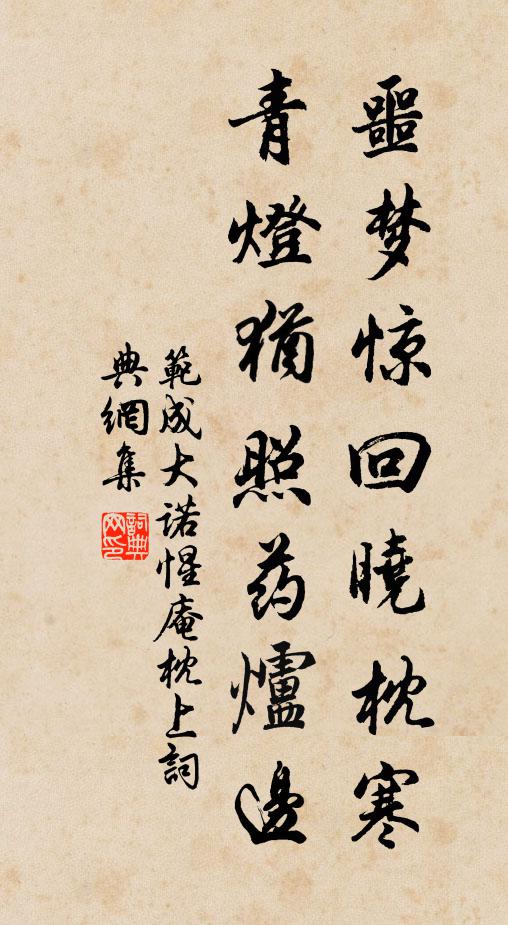 噩梦惊回曉枕寒
青燈猶照药爐邊
範成大诺惺庵枕上詞
典網集
詞典
网印